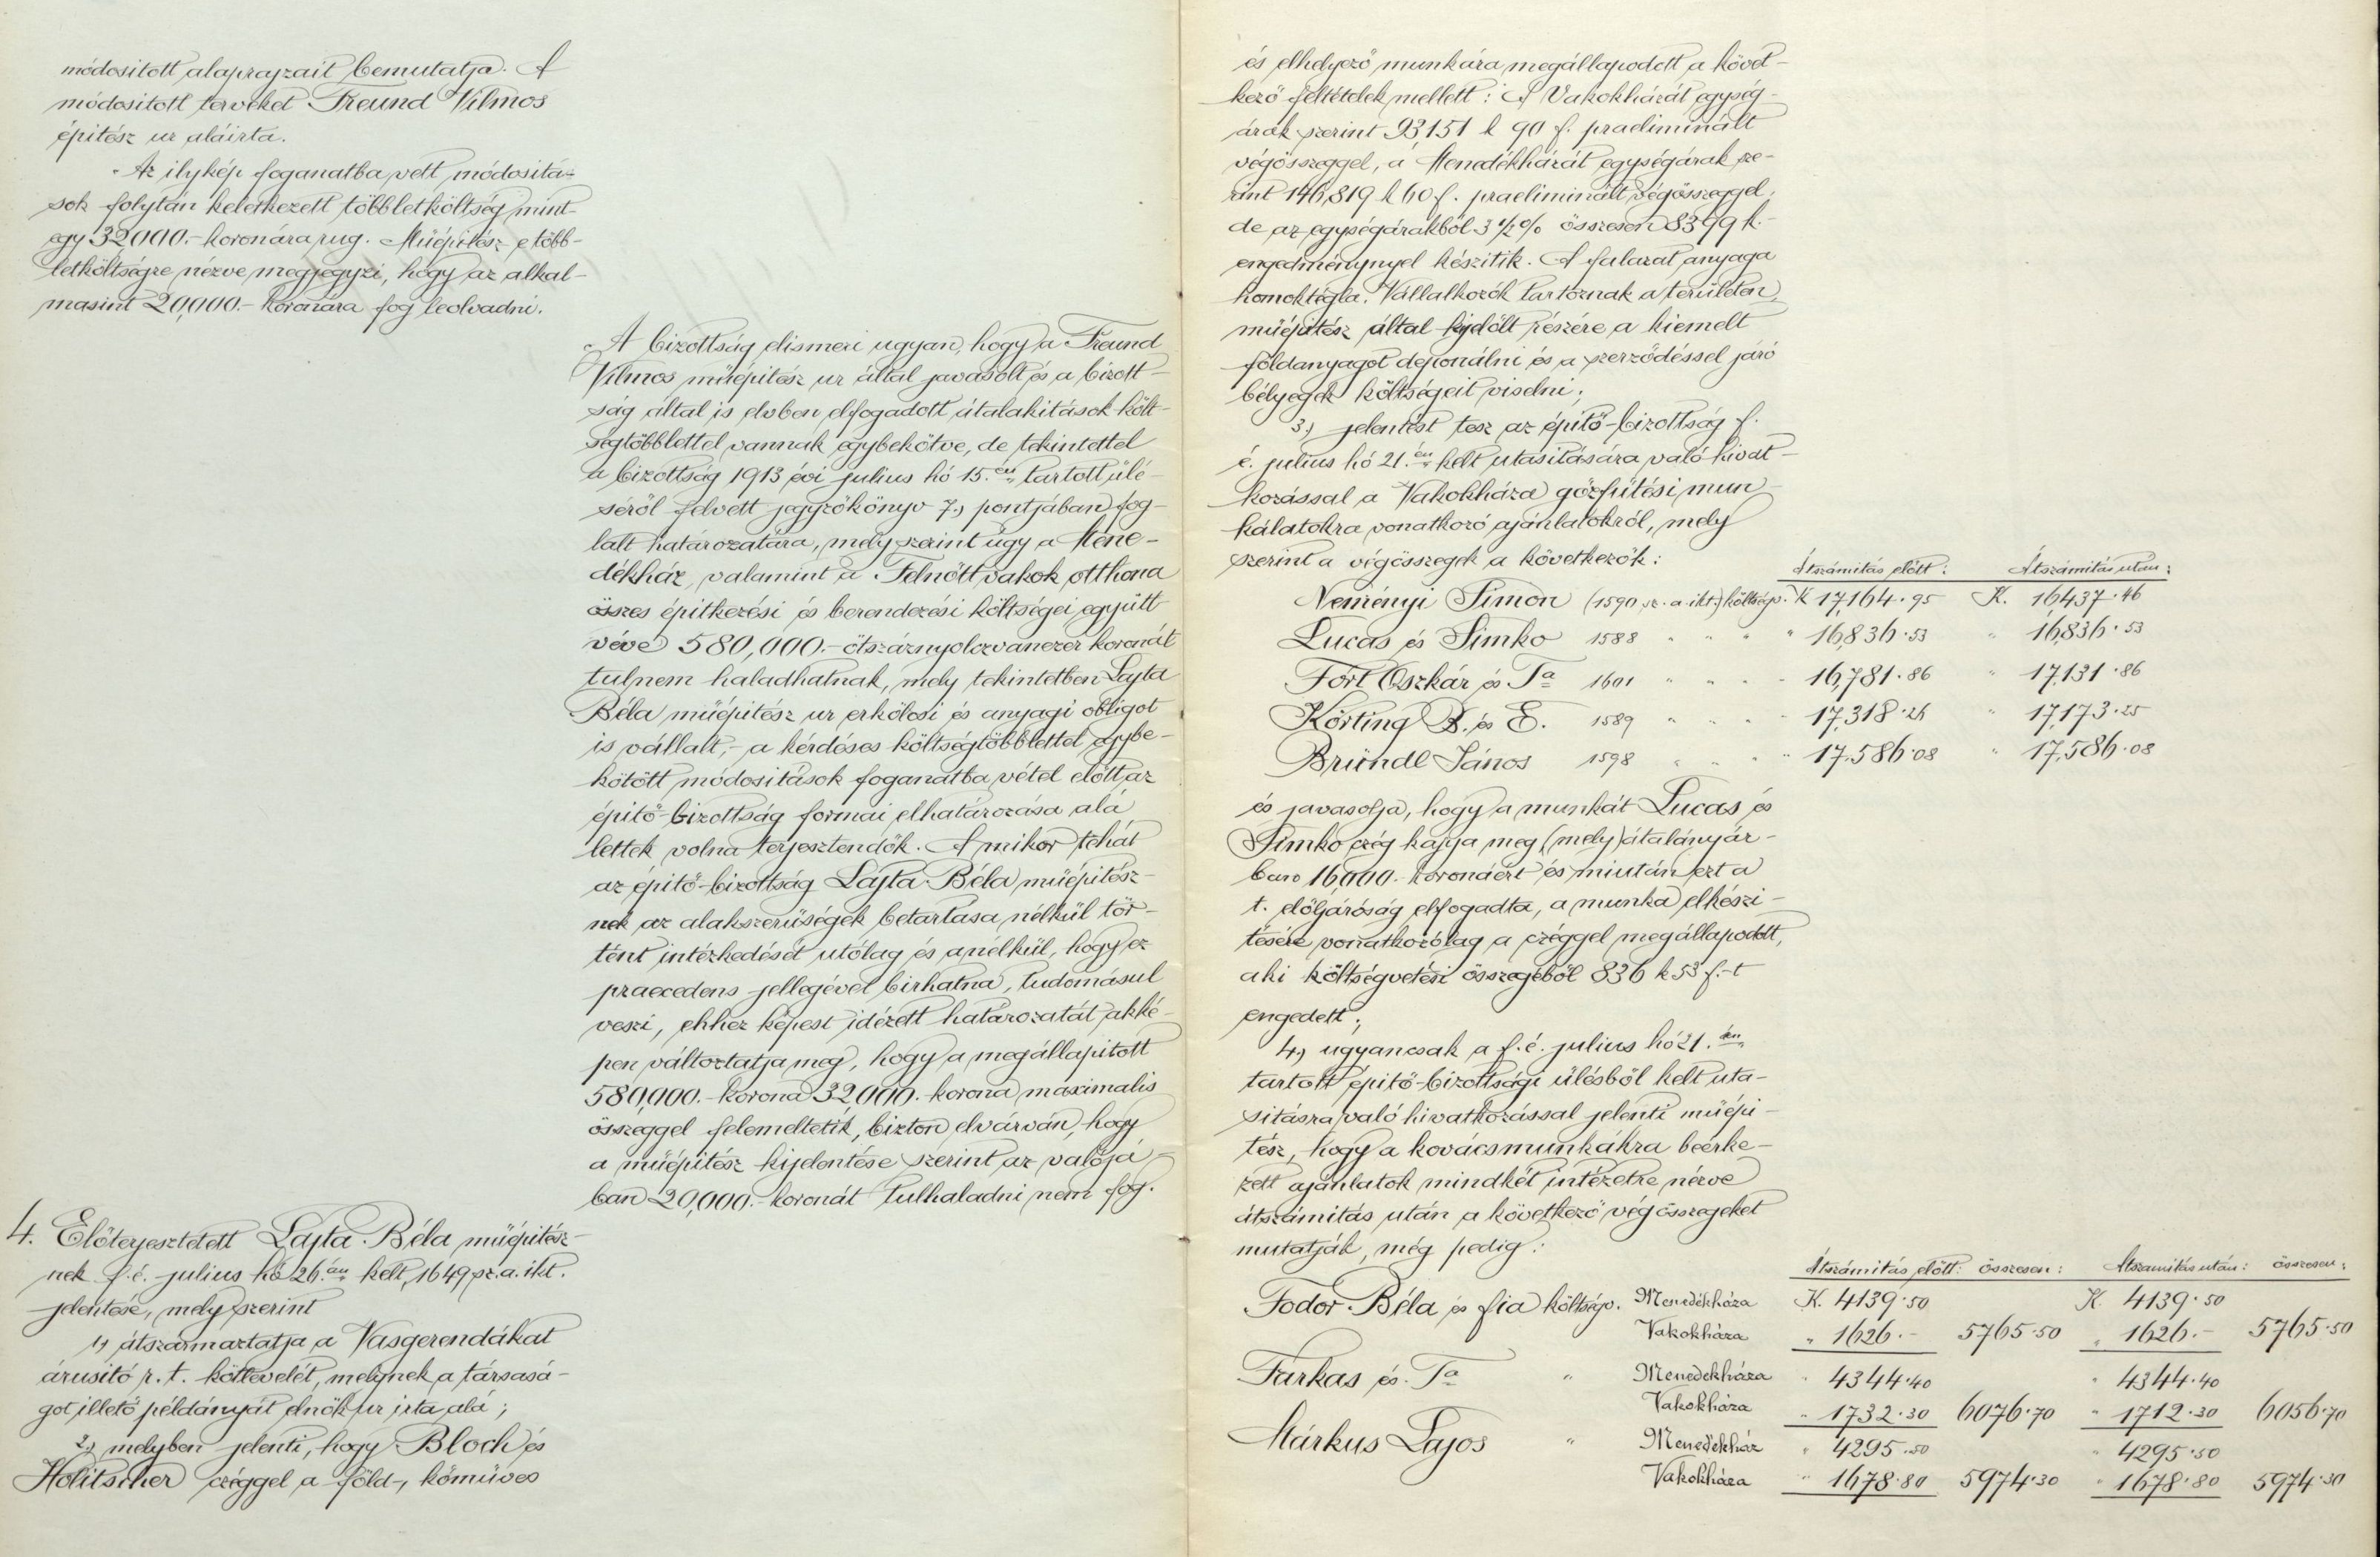 módositott alaprajzait bemutatja. A
módositott terveket Freund Vilmos
épitész ur aláirta.
Az ilykép foganatba vett módositá-
sok folytán keletkezett többletköltség mint-
egy 32000.- koronára rug. Müépitész e több-
letköltségre nézve megjegyzi, hogy az alkal-
masint 20,000.- koronára fog leolvadni.
A bizottság elismeri ugyan, hogy a Freund
Vilmos müépitész ur által javasolt és a bizott-
ság által is elvben elfogadott átalakitások költ-
ségtöbblettel vannak egybekötve, de tekintettel
a bizottság 1913 évi julius hó 15.én tartott ülé-
séről felvett jegyzőkönyv 7.) pontjában fog-
lalt határozatára, mely szerint úgy a Mene-
dékház, valamint a Felnőtt vakok otthona
összes épitkezési és berendezési költségei együtt
véve 580,000.- ötszáznyolczvanezer koronát
tul nem haladhatnak, mely tekintetben Lajta
Béla müépitész ur erkölcsi és anyagi obligot
is vállalt,- a kérdéses költségtöbblettel egybe-
kötött módositások foganatba vétel előtt az
épitő-bizottság formai elhatározása alá
lettek volna terjesztendők. Amikor tehát
az épitő-bizottság Lajta Béla müépitész-
nek az alakszerüségek betartása nélkül tör-
tént intézkedését utólag és anélkül, hogy ez
praecedens jellegével birhatna, tudomásul
veszi, ehhez képest idézett határozatát akké-
pen változtatja meg, hogy a megállapitott
580,000.- korona 32,000.- korona maximalis
összeggel felemeltetik, bizton elvárván, hogy
a müépitész kijelentése szerint az valójá-
ban 20,000.- koronát tulhaladni nem fog.
4. Előterjesztetett Lajta Béla müépitész-
nek f. é. julius hó 26.án kelt, 1649 sz. a. ikt.
jelentése, mely szerint
1.) átszármaztatja a Vasgerendákat
árusitó r. t. kötlevelét, melynek a társasá-
got illető példányát elnök ur irta alá;
2.) melyben jelenti, hogy Bloch és
Holitscher czéggel a föld-, kőmüves
és elhelyező munkára megállapodott a követ-
kező feltételek mellett: A Vakokházát egység-
árak szerint 93,151 k 90 f. praeliminált
végösszeggel, a Menedékházát egységárak sze-
rint 146,819 k 60 f. praeliminált végösszeggel,
de az egységárakból 3 1/2 % összesen 8399 k.-
engedménynyel készitik. A falazat anyaga
homoktégla. Vállalkozók tartoznak a területen,
müépitész által kijelölt részére a kiemelt
földanyagot deponálni és a szerződéssel járó
bélyegek költségeit viselni;
3.) jelentést tesz az épitő-bizottság f.
é. julius hó 21.én kelt utasitására való hivat-
kozással a Vakokháza gőzfütési mun-
kálatokra vonatkozó ajánlatokról, mely
szerint a végösszegek a következők:
Átszámitás előtt: Átszámitás után:
Neményi Simon (1590 sz. a ikt.) költségv. K 17,164.95 K. 16,437.46
Lucas és Simko 1588 " " " " 16,836.53 " 16,836.53
Fört Oszkár és Ta 1601 " " " " 16,781.86 " 17,131.86
Körting B. és E. 1589 " " " " 17,318.26 " 17,173.25
Bründl János 1598 " " " " 17,586.08 " 17,586.08
és javasolja, hogy a munkát Lucas és
Simko czég kapja meg, (mely) átalányár-
ban 16,000.- koronáért és miután ezt a
t. elöljáróság elfogadta, a munka elkészi-
tésére vonatkozólag a czéggel megállapodott,
aki költségvetési összegéből 836 k 53 f.-t
engedett;
4.) ugyancsak a f. é. julius hó 21.én
tartott épitő-bizottsági ülésből kelt uta-
sitásra való hivatkozással jelenti müépi-
tész, hogy a kovácsmunkákra beérke-
zett ajánlatok mindkét intézetre nézve
átszámitás után a következő végösszegeket
mutatják, még pedig:
Átszámitás előtt: összesen: Átszamitás után: összesen:
Fodor Béla és fia költségv. Menedékháza K. 4139.50 K. 4139.50
Vakokháza " 1626.- 5765.50 " 1626.- 5765.50
Farkas és Ta " Menedékháza " 4344.40 " 4344.40
Vakokháza " 1732.30 6076.70 " 1712.30 6056.70
Márkus Lajos " Menedékház " 4295.50 " 4295.50
Vakokháza " 1678.80 5974.30 " 1678.80 5974.30